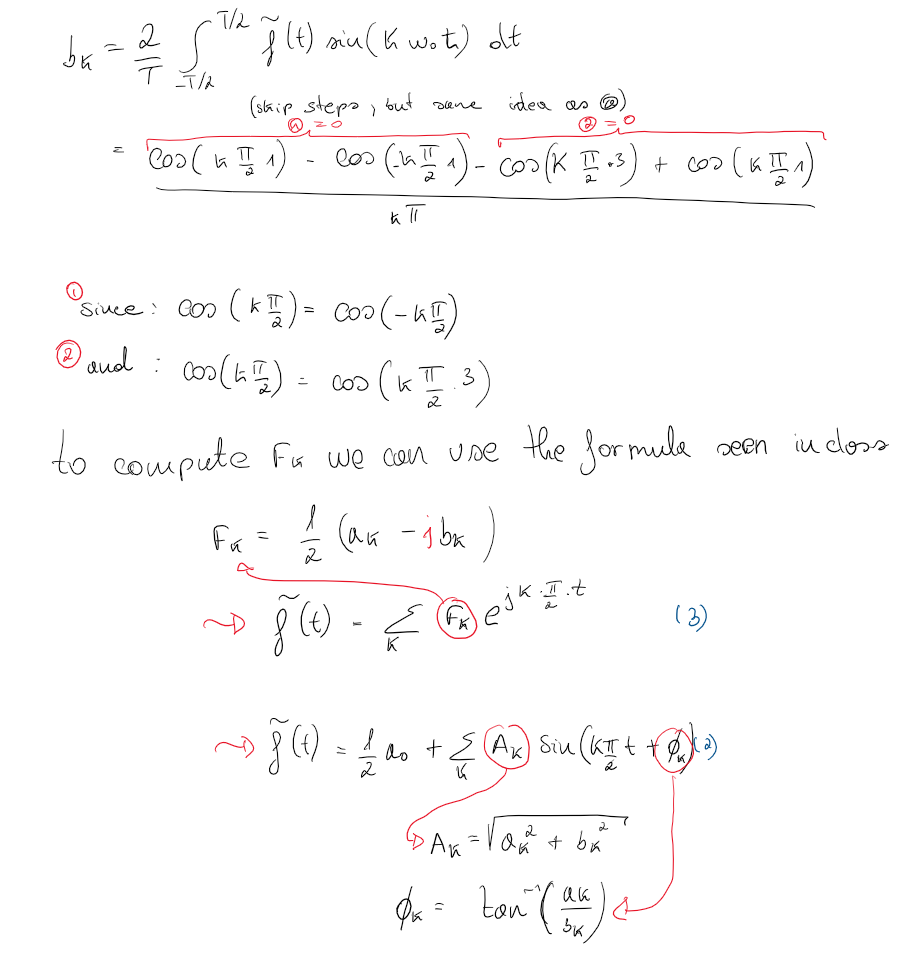 b_k = 2/T ∫_{-T/2}^{T/2} f̃(t) sin(k ω₀ t) dt
(skip steps, but same idea as @)
① = 0 ② = 0
= (cos(k π/2 1) - cos(-k π/2 1) - cos(k π/2 · 3) + cos(k π/2 1)) / kπ
① since : cos(k π/2) = cos(-k π/2)
② and : cos(k π/2) = cos(k π/2 · 3)
to compute F_k we can use the formula seen in class
F_k = 1/2 (a_k - j b_k)
→ f̃(t) = Σ_k F_k e^{j k · π/2 · t} (3)
→ f̃(t) = 1/2 a₀ + Σ_k A_k sin(k π/2 t + ϕ_k) (2)
A_k = √(a_k² + b_k²)
ϕ_k = tan⁻¹(a_k/b_k)